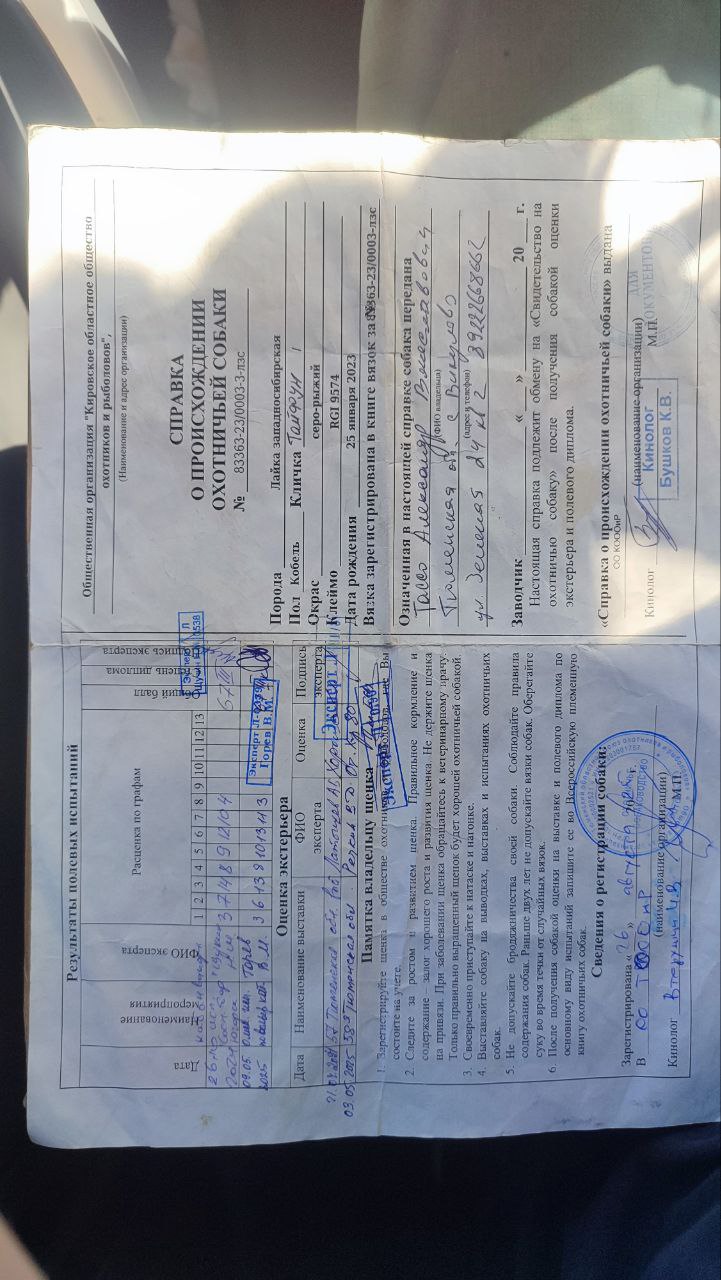 Общественная организация "Кировское областное общество
охотников и рыболовов",
(Наименование и адрес организации)
СПРАВКА
О ПРОИСХОЖДЕНИИ
ОХОТНИЧЬЕЙ СОБАКИ
№ 83363-23/0003-3-лзс
Порода Лайка западносибирская
Пол Кобель Кличка Тайфун
Окрас серо-рыжий
Клеймо RGI 9574
Дата рождения 25 января 2023
Вязка зарегистрирована в книге вязок за № 83363-23/0003-лзс
Означенная в настоящей справке собака передана
Тассо Александр
(ФИО владельца)
Тюменская обл. с Викулово
(адрес и телефон)
ул Зеленая 24 кв 2 89222668662
Заводчик « » 20 г.
Настоящая справка подлежит обмену на «Свидетельство на
охотничью собаку» после получения собакой оценки
экстерьера и полевого диплома.
«Справка о происхождении охотничьей собаки» выдана
ОО КОООиР
(наименование организации)
Кинолог М.П.
Кинолог
Бушков К.В.
ДЛЯ
ДОКУМЕНТОВ
Результаты полевых испытаний
Дата Наименование мероприятия ФИО эксперта Расценка по графам Общий балл Степень диплома Подпись эксперта
1 2 3 4 5 6 7 8 9 10 11 12 13
3 7 4 8 9 12 10 4 67 III
09.05. Горев
2025 В.М 3 6 13 8 10 13 4 3
Эксперт Л
0538
Горев В.М.
Оценка экстерьера
Дата Наименование выставки ФИО эксперта Оценка Подпись эксперта
57 Тюменская обл.
03.05.2025 58я Тюменская обл
Эксперт Л
Памятка владельцу щенка
1. Зарегистрируйте щенка в обществе охотников и рыболовов, где Вы
состоите на учете.
2. Следите за ростом и развитием щенка. Правильное кормление и
содержание залог хорошего роста и развития щенка. Не держите щенка
на привязи. При заболевании щенка обращайтесь к ветеринарному врачу.
Только правильно выращенный щенок будет хорошей охотничьей собакой
3. Своевременно приступайте к натаске и нагонке.
4. Выставляйте собаку на выводках, выставках и испытаниях охотничьих
собак.
5. Не допускайте бродяжничества своей собаки. Соблюдайте правила
содержания собак. Раньше двух лет не допускайте вязки собак. Оберегайте
суку во время течки от случайных вязок.
6. После получения собакой оценки на выставке и полевого диплома по
основному виду испытаний запишите ее во Всероссийскую племенную
книгу охотничьих собак.
Сведения о регистрации собаки:
Зарегистрирована « 26 » августа г.
В РО
(наименование организации)
Кинолог М.П.